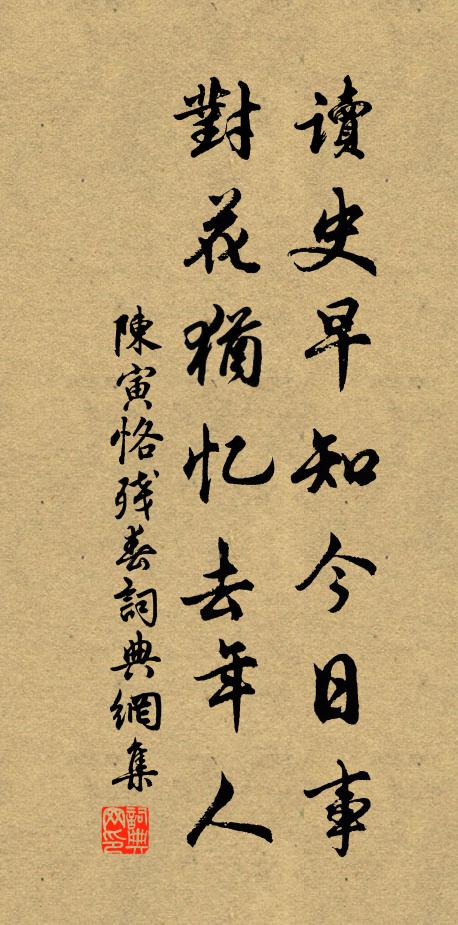 讀史早知今日事
對花猶忆去年人
陳寅恪残春詞典網集
詞典网印